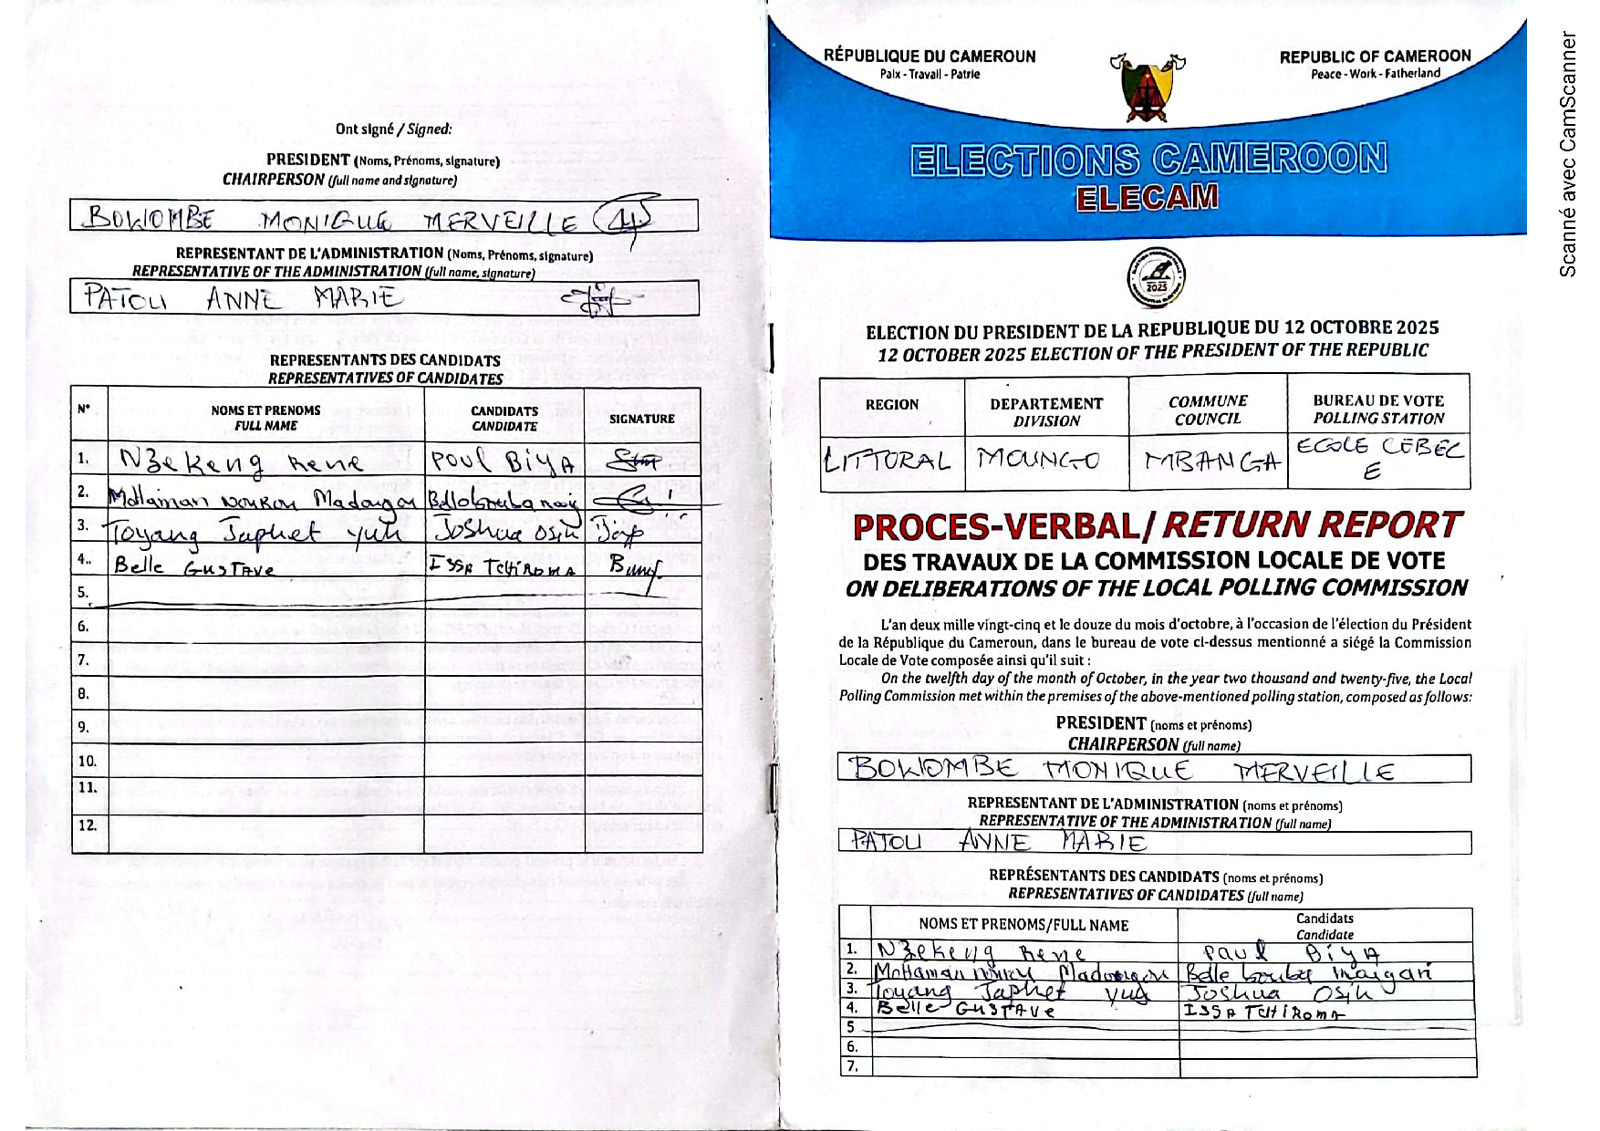 Ont signé / Signed:
PRESIDENT (Noms, Prénoms, signature)
CHAIRPERSON (full name and signature)
BOWOMBE MONIQUE MERVEILLE
REPRESENTANT DE L'ADMINISTRATION (Noms, Prénoms, signature)
REPRESENTATIVE OF THE ADMINISTRATION (full name, signature)
PATOU ANNE MARIE
REPRESENTANTS DES CANDIDATS
REPRESENTATIVES OF CANDIDATES
N° NOMS ET PRENOMS FULL NAME CANDIDATS CANDIDATE SIGNATURE
1. Nzekeng Rene Poul BiYA
2. Mohaman Madougou
3. Toyang Japhet Yuh Joshua Osih
4. Belle GUSTAVe ISSA TCHIROMA
5.
6.
7.
8.
9.
10.
11.
12.
RÉPUBLIQUE DU CAMEROUN
Paix - Travail - Patrie
REPUBLIC OF CAMEROON
Peace - Work - Fatherland
ELECTIONS CAMEROON
ELECAM
2025
ELECTION DU PRESIDENT DE LA REPUBLIQUE DU 12 OCTOBRE 2025
12 OCTOBER 2025 ELECTION OF THE PRESIDENT OF THE REPUBLIC
REGION DEPARTEMENT DIVISION COMMUNE COUNCIL BUREAU DE VOTE POLLING STATION
LITTORAL MOUNGO MBANGA ECOLE CEBEC E
PROCES-VERBAL/ RETURN REPORT
DES TRAVAUX DE LA COMMISSION LOCALE DE VOTE
ON DELIBERATIONS OF THE LOCAL POLLING COMMISSION
L'an deux mille vingt-cinq et le douze du mois d'octobre, à l'occasion de l'élection du Président
de la République du Cameroun, dans le bureau de vote ci-dessus mentionné a siégé la Commission
Locale de Vote composée ainsi qu'il suit :
On the twelfth day of the month of October, in the year two thousand and twenty-five, the Local
Polling Commission met within the premises of the above-mentioned polling station, composed as follows:
PRESIDENT (noms et prénoms)
CHAIRPERSON (full name)
BOWOMBE MONIQUE MERVEILLE
REPRESENTANT DE L'ADMINISTRATION (noms et prénoms)
REPRESENTATIVE OF THE ADMINISTRATION (full name)
PATOU ANNE MARIE
REPRÉSENTANTS DES CANDIDATS (noms et prénoms)
REPRESENTATIVES OF CANDIDATES (full name)
NOMS ET PRENOMS/FULL NAME Candidats Candidate
1. Nzekeng Rene Paul BiYA
2. Mohaman Madougou Belle bouba maigari
3. Toyang Japhet Yuh Joshua Osih
4. Belle GUSTAVe ISSA TCHIROMA
5
6.
7.
Scanné avec CamScanner